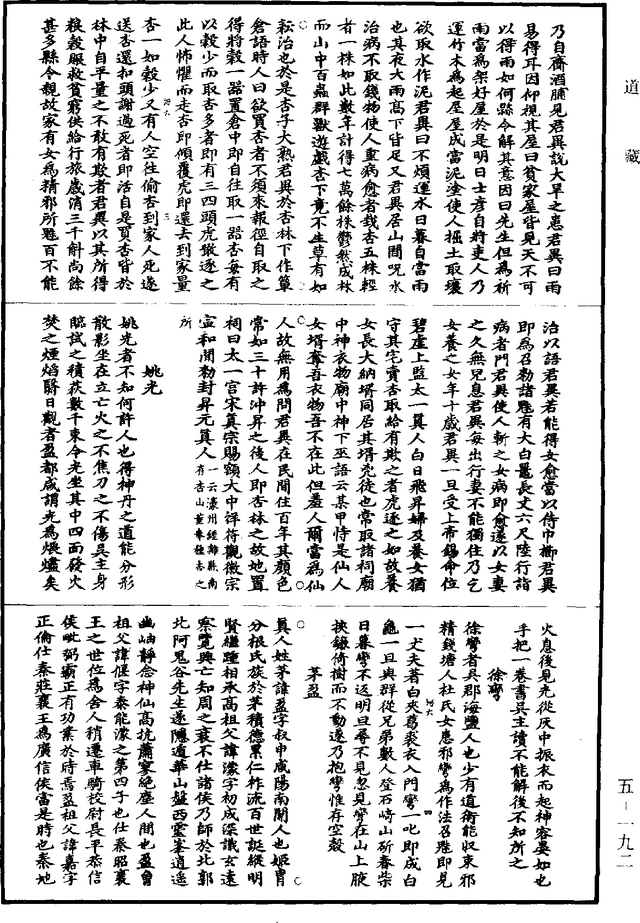 道藏
乃自齎酒脯見君異說大旱之患君異曰雨
易得耳因仰視其屋曰貧家屋皆見天不可
以得雨如何縣令解其意因曰先生但為祈
雨當為架好屋於是明日士彥自將吏人乃
運竹木為起屋屋成當泥塗使人掘土取壤
欲取水作泥君異曰不煩運水日暮自當雨
也其夜大雨高下皆足又君異居山間呪水
治病不取錢物使人重病愈者栽杏五株輕
者一株如此數年計得七萬餘株鬱然成林
而山中百蟲群獸遊戲杏下竟不生草有如
耘治也於是杏子大熟君異於杏林下作簞
倉語時人曰欲買杏者不須來報徑自取之
得將穀一器置倉中即自往取一器杏每有
以穀少而取杏多者即有三四頭虎皷逐之
此人怖懼而走杏即傾覆虎即還去到家量
杏一如穀少又有人空往偷杏到家人死遂
送杏還扣頭謝過死者即活自是買杏皆於
林中自平量之不敢有欺者君異以其所得
穀賑救貧窮供給行旅歲消三千斛尚餘
甚多縣令親故家有女為精邪所魅百不能
治以語君異若能得女愈當以侍巾櫛君異
即為召勅諸魅有大白鼉長丈六尺陸行詣
病者門君異使人斬之女病即愈遂以女妻
之久無兒息君異每出行妻不能獨住乃乞
女養之女年十歲君異一旦受上帝錫命位
碧虛上監太一真人白日飛昇婦及養女猶
守其宅賣杏取給有欺之者虎逐之如故養
女長大納壻同居其壻兇徒也常取諸祠廟
中神衣物廟中神下巫語云某甲恃是仙人
女壻奪吾衣物吾不在此但羞人爾當為仙
人故無用為問君異在民間住百年其顏色
常如三十許沖昇之後人即杏林之故地置
祠曰太一宫宋真宗賜額大中祥符觀徽宗
宣和間勑封昇元真人一云濠州鍾離縣南
有杏山董奉種杏之
所
姚光
姚光者不知何許人也得神丹之道能分形
散影坐在立亡火之不焦刀之不傷吳主身
臨試之積荻數千束令光坐其中四面發火
焚之煙焰翳日觀者盈都咸謂光為煨燼矣
火息後見光從灰中振衣而起神容晏如也
手把一卷書吳主讀不能解後不知所之
徐彎
徐彎者吳郡海鹽人也少有道術能收束邪
精錢塘人杜氏女患邪彎為作法召魅即見
一丈夫著白夾葛裘衣入門彎一叱即成白
龜一旦與群從兄弟數人登石崎山斫春柴
日暮彎不返明旦尋不見忽見彎在山上腋
挾鎌倚樹而不動遂乃抱彎惟存空殼
茅盈
真人姓茅諱盈字叔申咸陽南關人也姬胄
分根氏族於茅積德累仁祚流百世誕縱明
賢繼踵相承高祖父諱濛字初成深識玄遠
察覽興亡知周之衰不仕諸侯乃師於北郭
北阿鬼谷先生遂隱遁華山盤西靈峯逍遙
幽岫靜念神仙高抗蕭寥絕塵人間也盈曾
祖父諱偃字泰能濛之第四子也仕秦昭襄
王之世位為舍人稍遷車騎校尉長平恭信
侯毗弼霸正有功業於時焉盈祖父諱嘉字
正倫仕秦莊襄王為廣信侯當是時也秦地
五-一九二